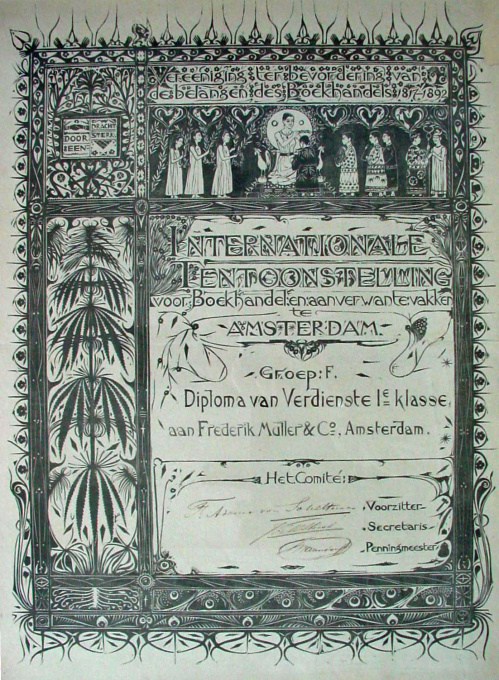 Vereeniging ter bevordering van
de belangen des Boekhandels 1817-1892
DOOR
EEN
STERK
INTERNATIONALE
TENTOONSTELLING
voor Boekhandel en aanverwante vakken
te
AMSTERDAM.
Groep: F.
Diploma van Verdienste 1e klasse,
aan Frederik Muller & Co, Amsterdam.
Het Comité:
Voorzitter
Secretaris
Penningmeester